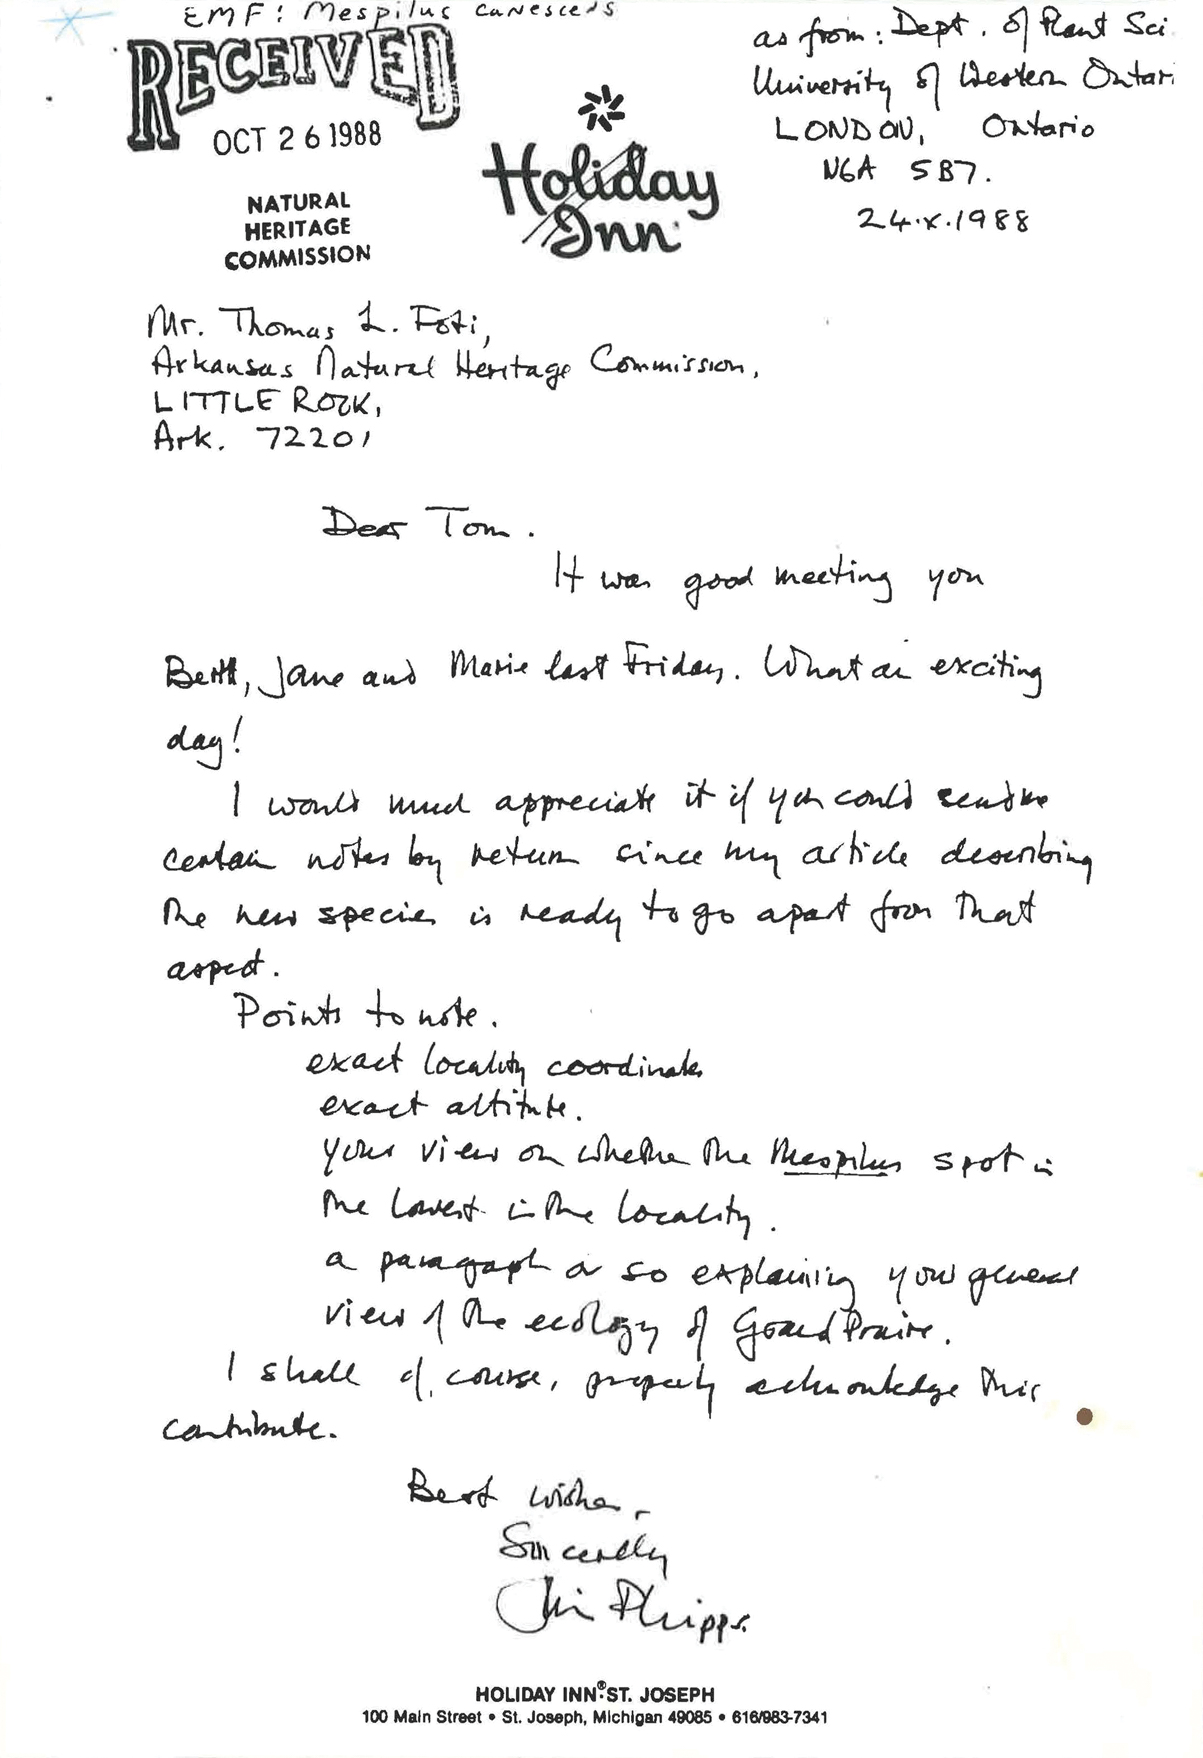 EMF: Mespilus canescens
RECEIVED
OCT 26 1988
NATURAL
HERITAGE
COMMISSION
Holiday
Inn
as from: Dept. of Plant Sci
University of Western Ontari
LONDON, Ontario
N6A 5B7.
24.x.1988
Mr. Thomas L. Foti,
Arkansas Natural Heritage Commission,
LITTLE ROCK,
Ark. 72201
Dear Tom.
It was good meeting you
Bertt, Jane and Marie last Friday. What an exciting
day!
I would much appreciate it if you could send me
certain notes by return since my article describing
the new species is ready to go apart from that
aspect.
Points to note.
exact locality coordinates
exact altitute.
your view on whether the Mespilus spot is
the lowest in the locality.
a paragraph or so explaining your general
view of the ecology of Grand Prairie.
I shall of course, properly acknowledge this
contribute.
Best wishes,
Sincerely
Jim Phipps.
HOLIDAY INN® ST. JOSEPH
100 Main Street • St. Joseph, Michigan 49085 • 616/983-7341